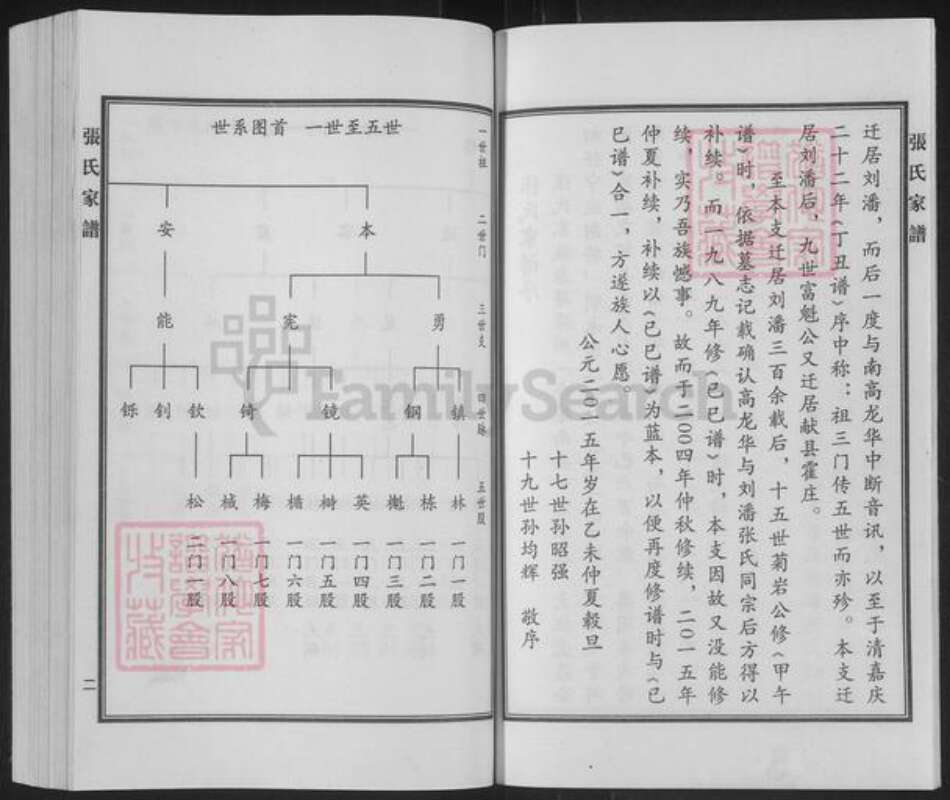 張氏家譜
迁居刘潘，而后一度与南高龙华中断音讯，以至于清嘉庆
二十二年《丁丑谱》序中称：祖三门传五世而亦殄。本支迁
居刘潘后，九世富魁公又迁居献县霍庄。
至本支迁居刘潘三百余载后，十五世菊岩公修《甲午
谱》时，依据墓志记载确认高龙华与刘潘张氏同宗后方得以
补续。而一九八九年修《己巳谱》时，本支因故又没能修
续，实乃吾族憾事。故而于二00四年仲秋修续，二0一五年
仲夏补续，补续以《己巳谱》为蓝本，以便再度修谱时与《己
巳谱》合一，方遂族人心愿。
公元二0一五年岁在乙未仲夏毂旦
十七世孙昭强
十九世孙均辉 敬序
世系图首 一世至五世
一世祖
二世门
三世支
四世
五世股
本
安
勇
宪
能
镇
钢
镜
锜
钦
钊
铄
林
栋
榭
英
树
楯
梅
棫
松
一门一股
一门二股
一门三股
一门四股
一门五股
一门六股
一门七股
一门八股
二门一股
張氏家譜
二
FamilySearch